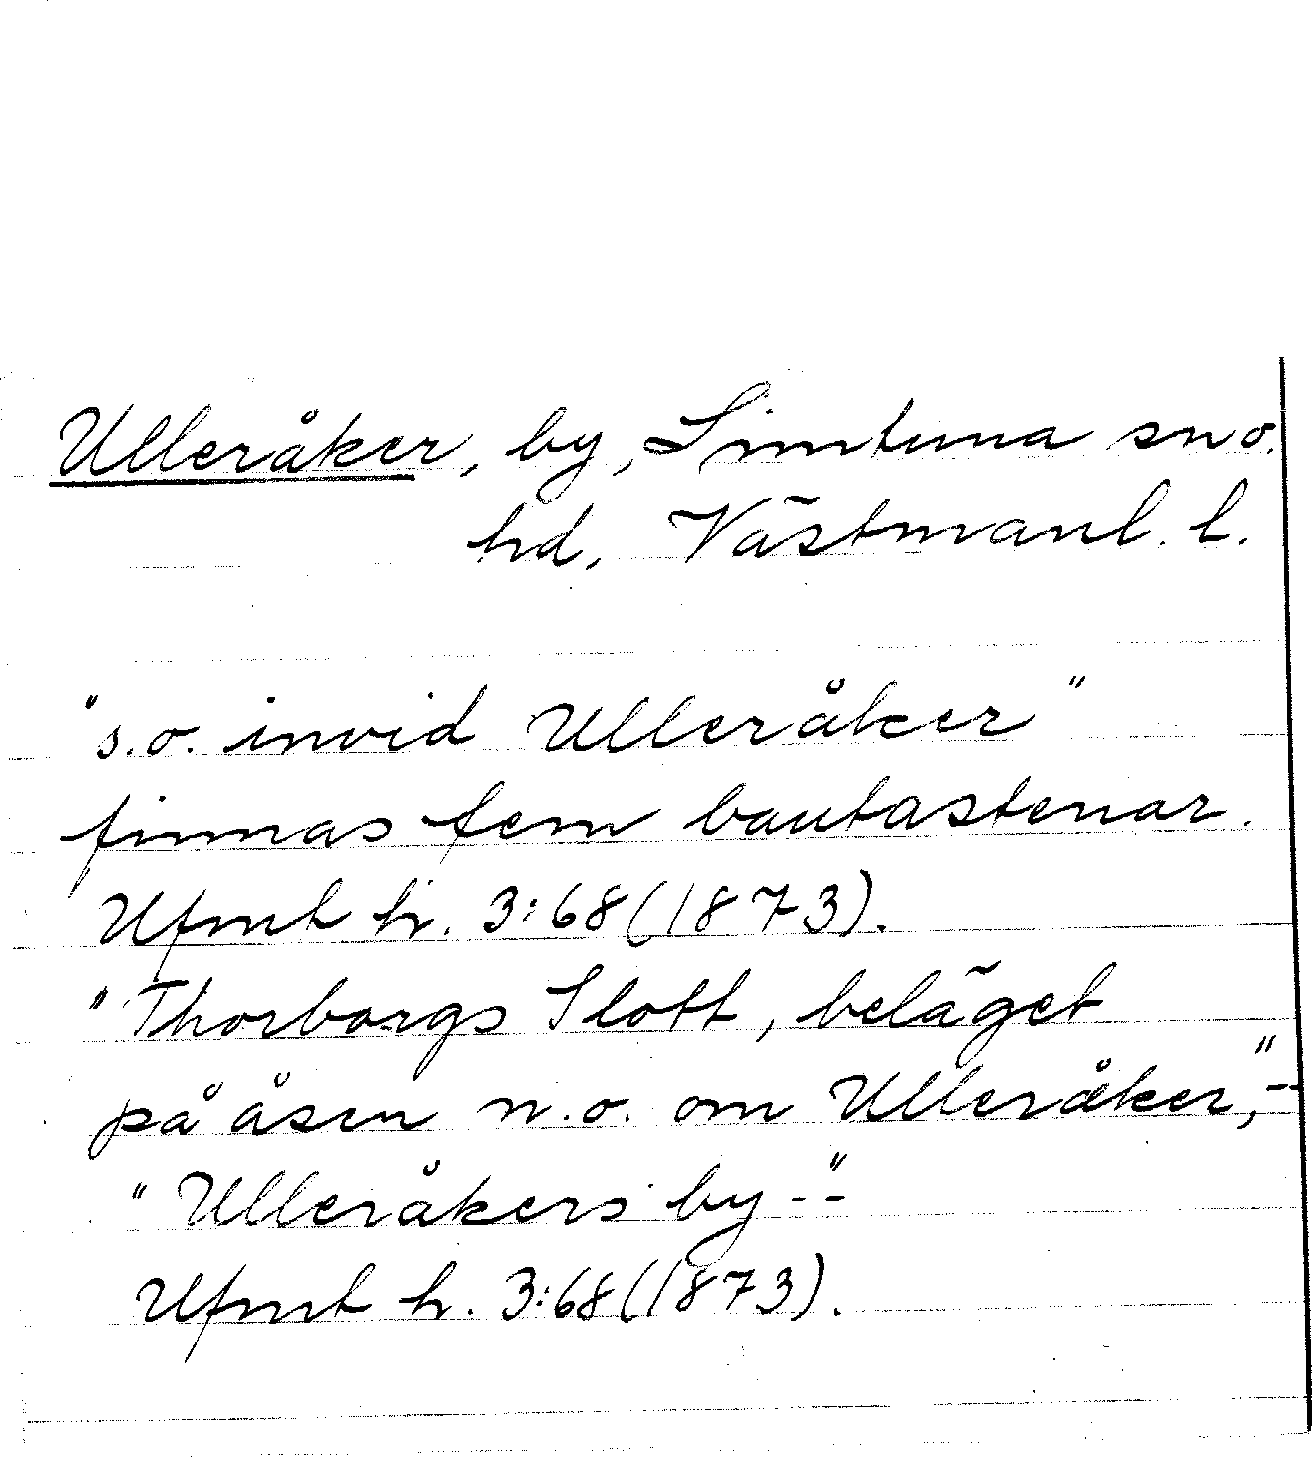 Ulleråker, by, Simtuna sn o.
hd, Västmanl. l.
"s.o. invid Ulleråker"
finnas fem bautastenar.
Ufmt h. 3:68(1873).
"Thorborgs Slott, beläget
på åsen n.o. om Ulleråker,"--
"Ulleråkers by --"
Ufmt h. 3:68(1873).